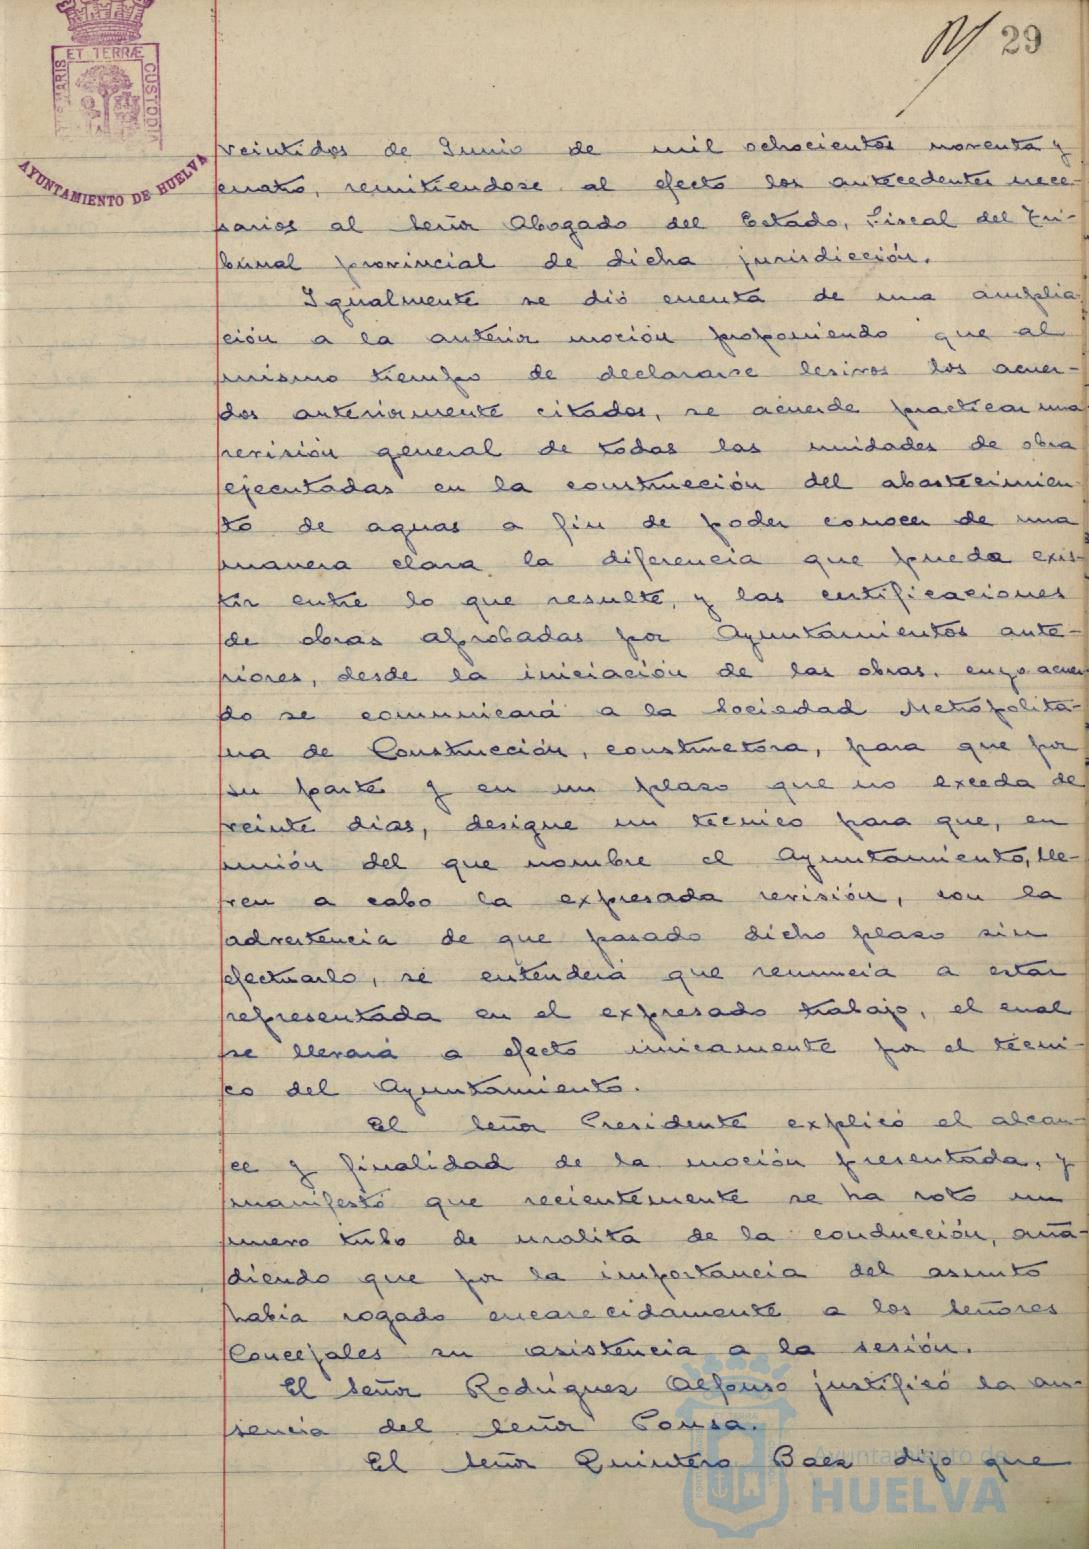 29
ET TERRÆ
MARIS
CUSTODIA
AYUNTAMIENTO DE HUELVA
veintidos de Junio de mil ochocientos noventa y
cuatro, remitiendose al efecto los antecedentes nece-
sarios al Señor Abogado del Estado, Fiscal del Tri-
bunal provincial de dicha jurisdicción.
Igualmente se dió cuenta de una amplia-
ción a la anterior moción proponiendo que al
mismo tiempo de declararse lesivos los acuer-
dos anteriormente citados, se acuerde practicar una
revisión general de todas las unidades de obra
ejecutadas en la construcción del abastecimien-
to de aguas a fin de poder conocer de una
manera clara la diferencia que pueda exis-
tir entre lo que resulte, y las certificaciones
de obras aprobadas por Ayuntamientos ante-
riores, desde la iniciación de las obras, cuyo acuer-
do se comunicará a la Sociedad Metropolita-
na de Construcción, constructora, para que por
su parte y en un plazo que no exceda de
veinte dias, designe un técnico para que, en
unión del que nombre el Ayuntamiento, lle-
ven a cabo la expresada revisión, con la
advertencia de que pasado dicho plazo sin
efectuarlo, se entenderá que renuncia a estar
representada en el expresado trabajo, el cual
se llevará a efecto únicamente por el técni-
co del Ayuntamiento.
El Señor Presidente explicó el alcan-
ce y finalidad de la moción presentada, y
manifestó que recientemente se ha roto un
nuevo tubo de uralita de la conducción, aña-
diendo que por la importancia del asunto
habia rogado encarecidamente a los Señores
Concejales su asistencia a la sesión.
El Señor Rodriguez Alfonso justificó la au-
sencia del Señor Ponsa.
El Señor Quintero Baez dijo que
Ayuntamiento de
HUELVA